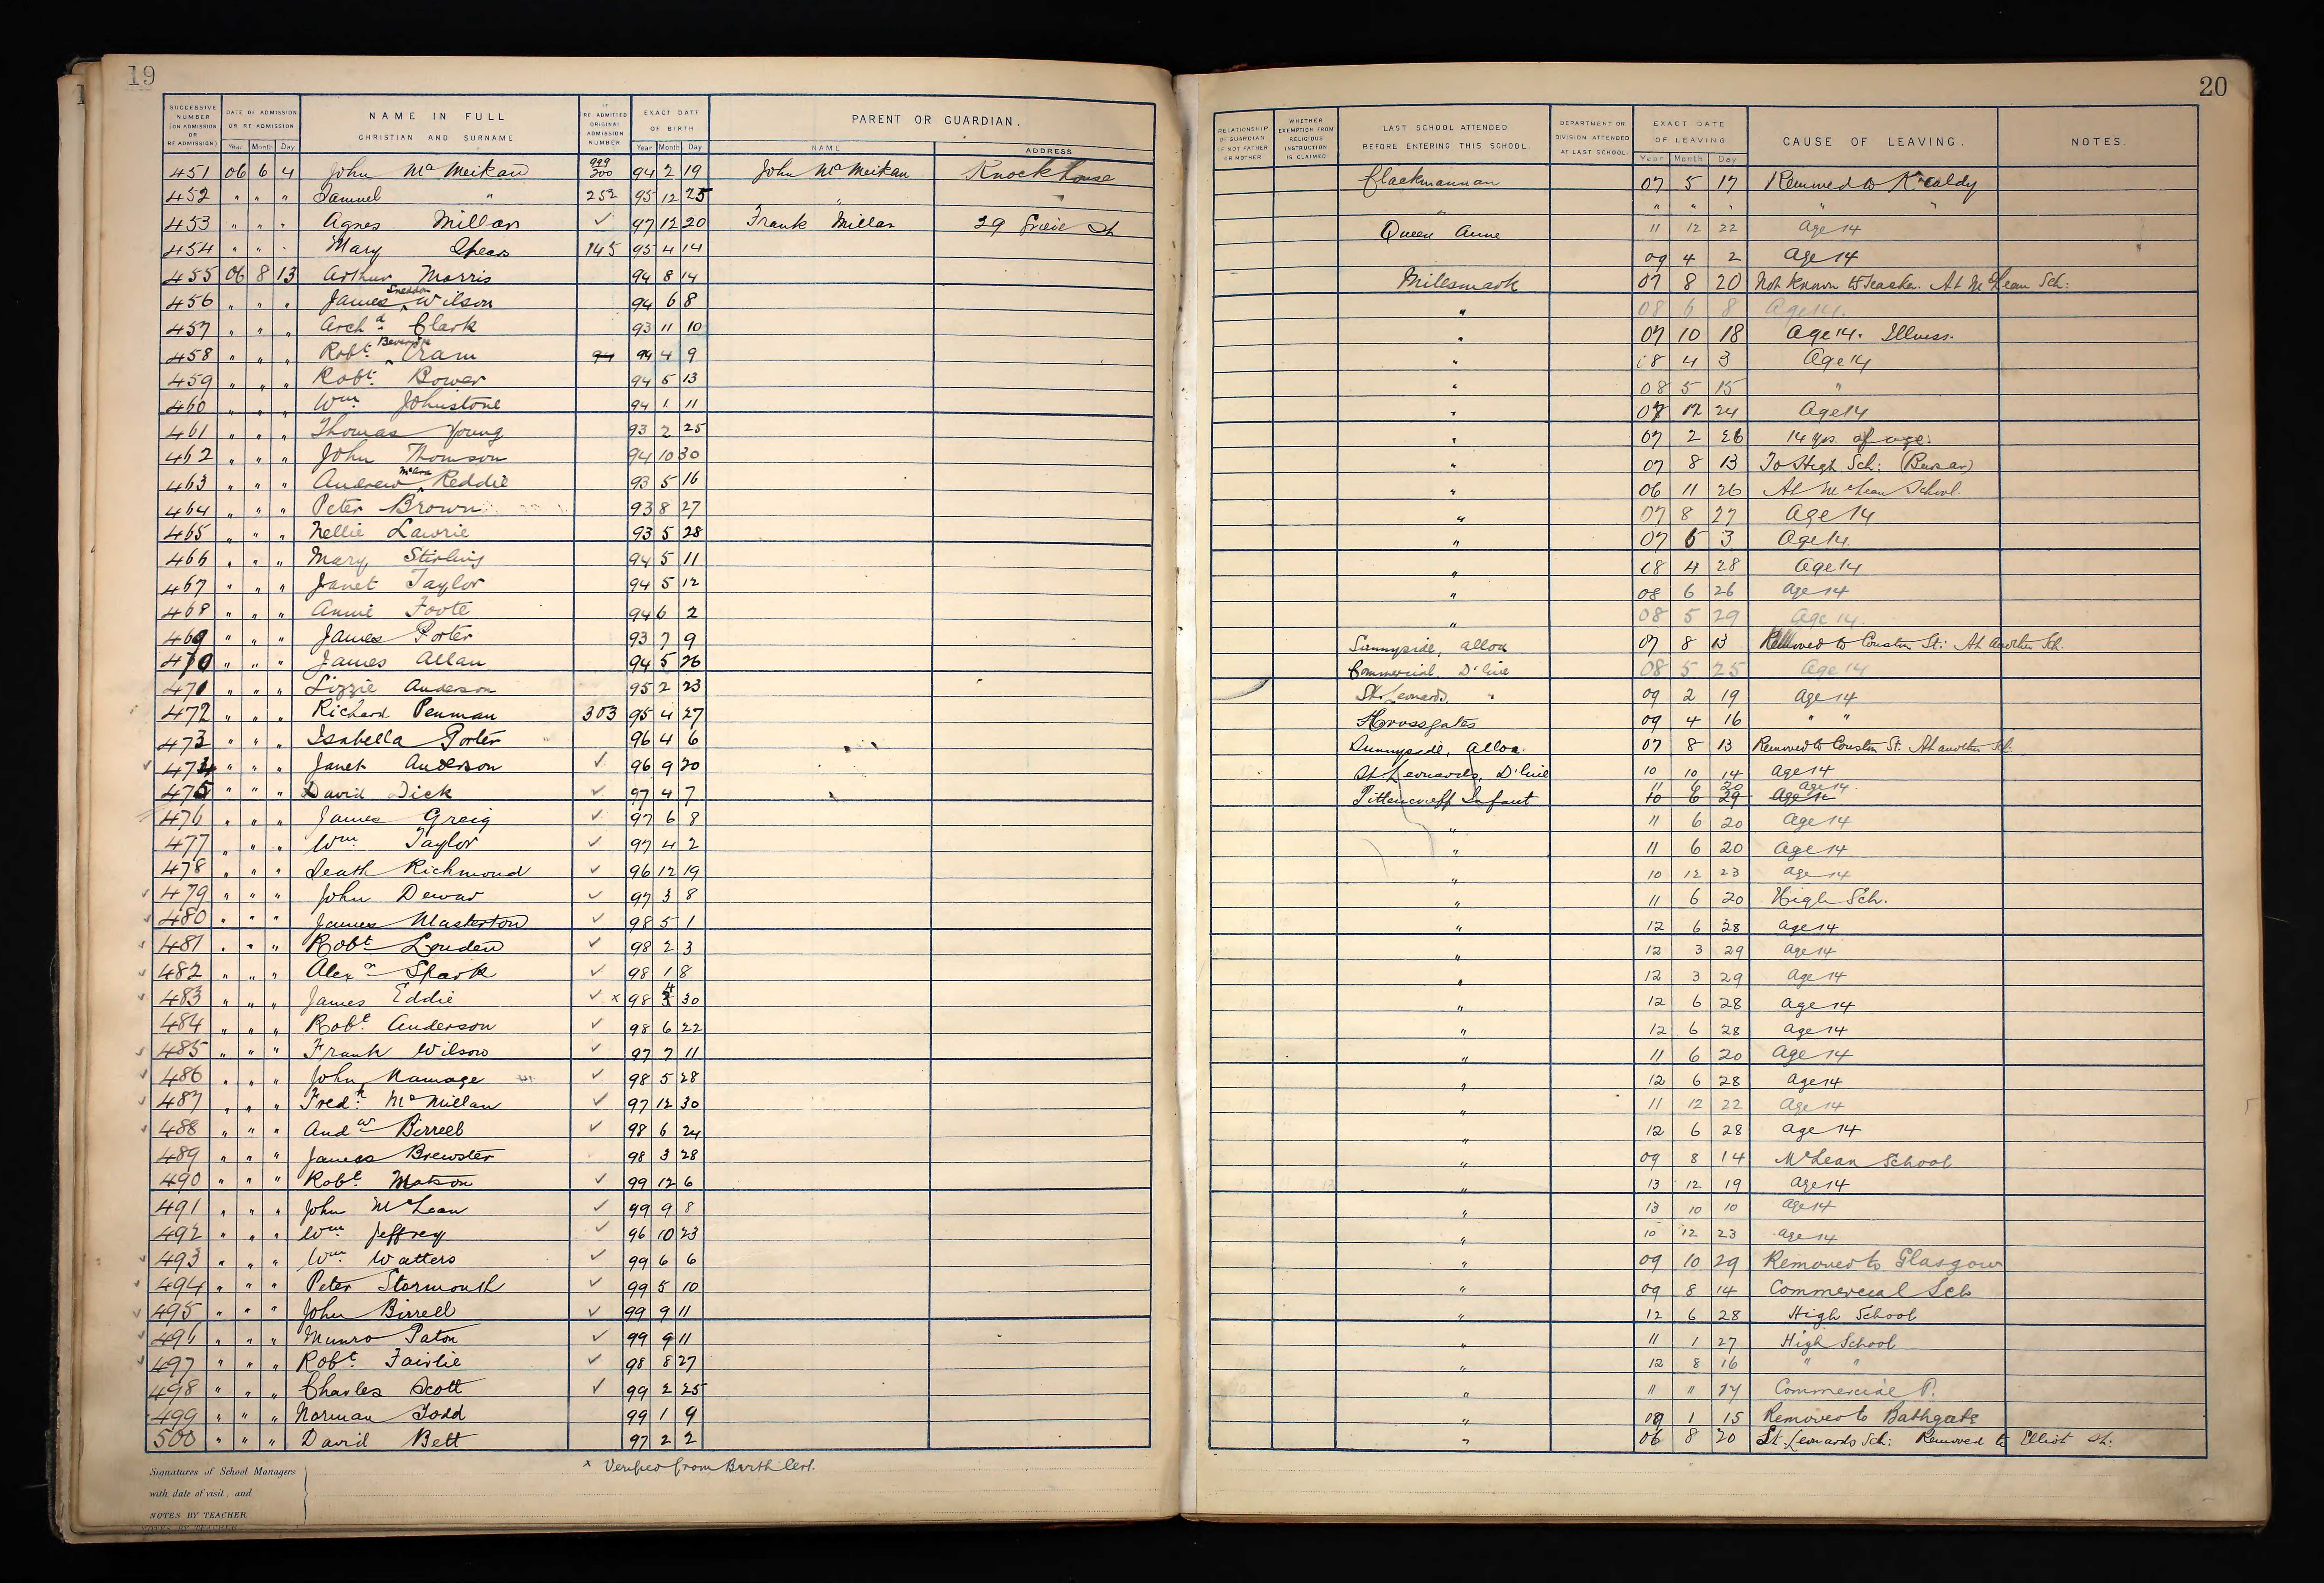 19
SUCCESSIVE NUMBER (ON ADMISSION OR RE ADMISSION) DATE OF ADMISSION OR RE-ADMISSION Year Month Day NAME IN FULL CHRISTIAN AND SURNAME IF RE ADMITTED ORIGINAL ADMISSION NUMBER EXACT DATE OF BIRTH Year Month Day PARENT OR GUARDIAN. NAME ADDRESS
451 06 6 4 John McMeikan 200 94 2 19 John McMeikan Knockhouse
452 " " " Samuel " 252 95 12 25 "
453 " " " Agnes Millar ✓ 97 12 20 Frank Millar 29 Grieve St
454 " " " Mary Spears 145 95 4 14
455 06 8 13 Arthur Morris 94 8 14
456 " " " James Sneddon Wilson 94 6 8
457 " " " Archd Clark 93 11 10
458 " " " Robt. Cram 94 4 9
459 " " " Robt. Bower 94 5 13
460 " " " Wm Johnstone 94 1 11
461 " " " Thomas Young 93 2 25
462 " " " John Thomson 94 10 30
463 " " " Andrew Reddie 93 5 16
464 " " " Peter Brown 93 8 27
465 " " " Nellie Lawrie 93 5 28
466 " " " Mary Stirling 94 5 11
467 " " " Janet Taylor 94 5 12
468 " " " Annie Foote 94 6 2
469 " " " James Porter 93 7 9
470 " " " James Allan 94 5 26
471 " " " Lizzie Anderson 95 2 23
472 " " " Richard Penman 303 95 4 27
473 " " " Isabella Porter 96 4 6
474 " " " Janet Anderson ✓ 96 9 20
475 " " " David Dick ✓ 97 4 7
476 " " " James Greig ✓ 97 6 8
477 " " " Wm. Taylor ✓ 97 4 2
478 " " " Seath Richmond ✓ 96 12 19
479 " " " John Dewar ✓ 97 3 8
480 " " " James Masterton ✓ 98 5 1
481 " " " Robt Louden ✓ 98 2 3
482 " " " Alexr Spark ✓ 98 1 8
483 " " " James Eddie ✓ x 98 4 30
484 " " " Robt. Anderson ✓ 98 6 22
485 " " " Frank Wilson ✓ 97 7 11
486 " " " John Ramage ✓ 98 5 28
487 " " " Fredk McMillan ✓ 97 12 30
488 " " " Andw Birrell ✓ 98 6 24
489 " " " James Brewster 98 3 28
490 " " " Robt. Matson ✓ 99 12 6
491 " " " John McLean ✓ 99 9 8
492 " " " Wm. Jeffrey ✓ 96 10 23
493 " " " Wm Watters ✓ 99 6 6
494 " " " Peter Stormonth ✓ 99 5 10
495 " " " John Birrell ✓ 99 9 11
496 " " " Munro Paton ✓ 99 9 11
497 " " " Robt. Fairlie ✓ 98 8 27
498 " " " Charles Scott ✓ 99 2 25
499 " " " Norman Todd 99 1 9
500 " " " David Bett 97 2 2
x Verified from Birth Cert.
Signatures of School Managers
with date of visit, and
NOTES BY TEACHER
20
RELATIONSHIP OF GUARDIAN IF NOT FATHER OR MOTHER WHETHER EXEMPTION FROM RELIGIOUS INSTRUCTION IS CLAIMED LAST SCHOOL ATTENDED BEFORE ENTERING THIS SCHOOL. DEPARTMENT OR DIVISION ATTENDED AT LAST SCHOOL EXACT DATE OF LEAVING Year Month Day CAUSE OF LEAVING. NOTES.
Clackmannan 07 5 17 Removed to K'caldy
" " " " " "
Queen Anne 11 12 22 Age 14
09 4 2 Age 14
Milesmark 07 8 20 Not Known to Teacher. At McLean Sch:
" 08 6 8 Age 14.
" 07 10 18 Age 14. Illness.
" 08 4 3 Age 14
" 08 5 15 "
" 07 12 24 Age 14
" 07 2 26 14 yrs. of age.
" 07 8 13 To High Sch: (Bursar)
" 06 11 26 At McLean School.
" 07 8 27 Age 14
" 07 6 3 Age 14.
" 08 4 28 Age 14
" 08 6 26 Age 14
" 08 5 29 Age 14.
Sunnyside, Alloa 07 8 13 Removed to Couston St: At another Sch.
Commercial, D'line 08 5 25 Age 14
St. Leonards, " 09 2 19 Age 14
Crossgates 09 4 16 " "
Sunnyside, Alloa. 07 8 13 Removed to Couston St: At another Sch.
St. Leonards, D'line 10 10 14 Age 14
11 6 20 Age 14.
Pittencrieff Infant 10 6 29 Age 14
" 11 6 20 Age 14
" 11 6 20 Age 14
" 10 12 23 Age 14
" 11 6 20 High Sch.
" 12 6 28 Age 14
" 12 3 29 Age 14
" 12 3 29 Age 14
" 12 6 28 Age 14
" 12 6 28 Age 14
" 11 6 20 Age 14
" 12 6 28 Age 14
" 11 12 22 Age 14
" 12 6 28 Age 14
" 09 8 14 McLean School
" 13 12 19 Age 14
" 13 10 10 Age 14
" 10 12 23 Age 14
" 09 10 29 Removed to Glasgow
" 09 8 14 Commercial Sch
" 12 6 28 High School
" 11 1 27 High School
" 12 8 16 " "
" " " 14 Commercial P.
" 09 1 15 Removed to Bathgate
" 06 8 20 St. Leonards Sch: Removed to Elliot St.